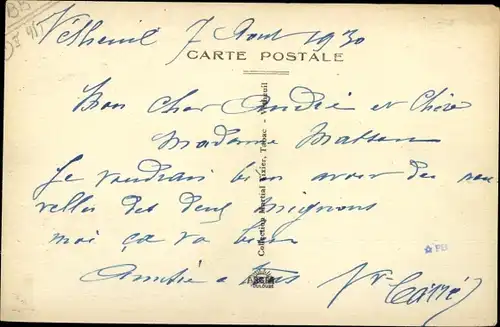 Vétheuil 7 Aout 1930
CARTE POSTALE
Mon cher André et Chère
Madame Masson
Je voudrais bien avoir des nou
velles des deux mignons
moi ça va bien
Amitié a tous
Collection Martial Vizier, Tabac - Vétheuil
FB